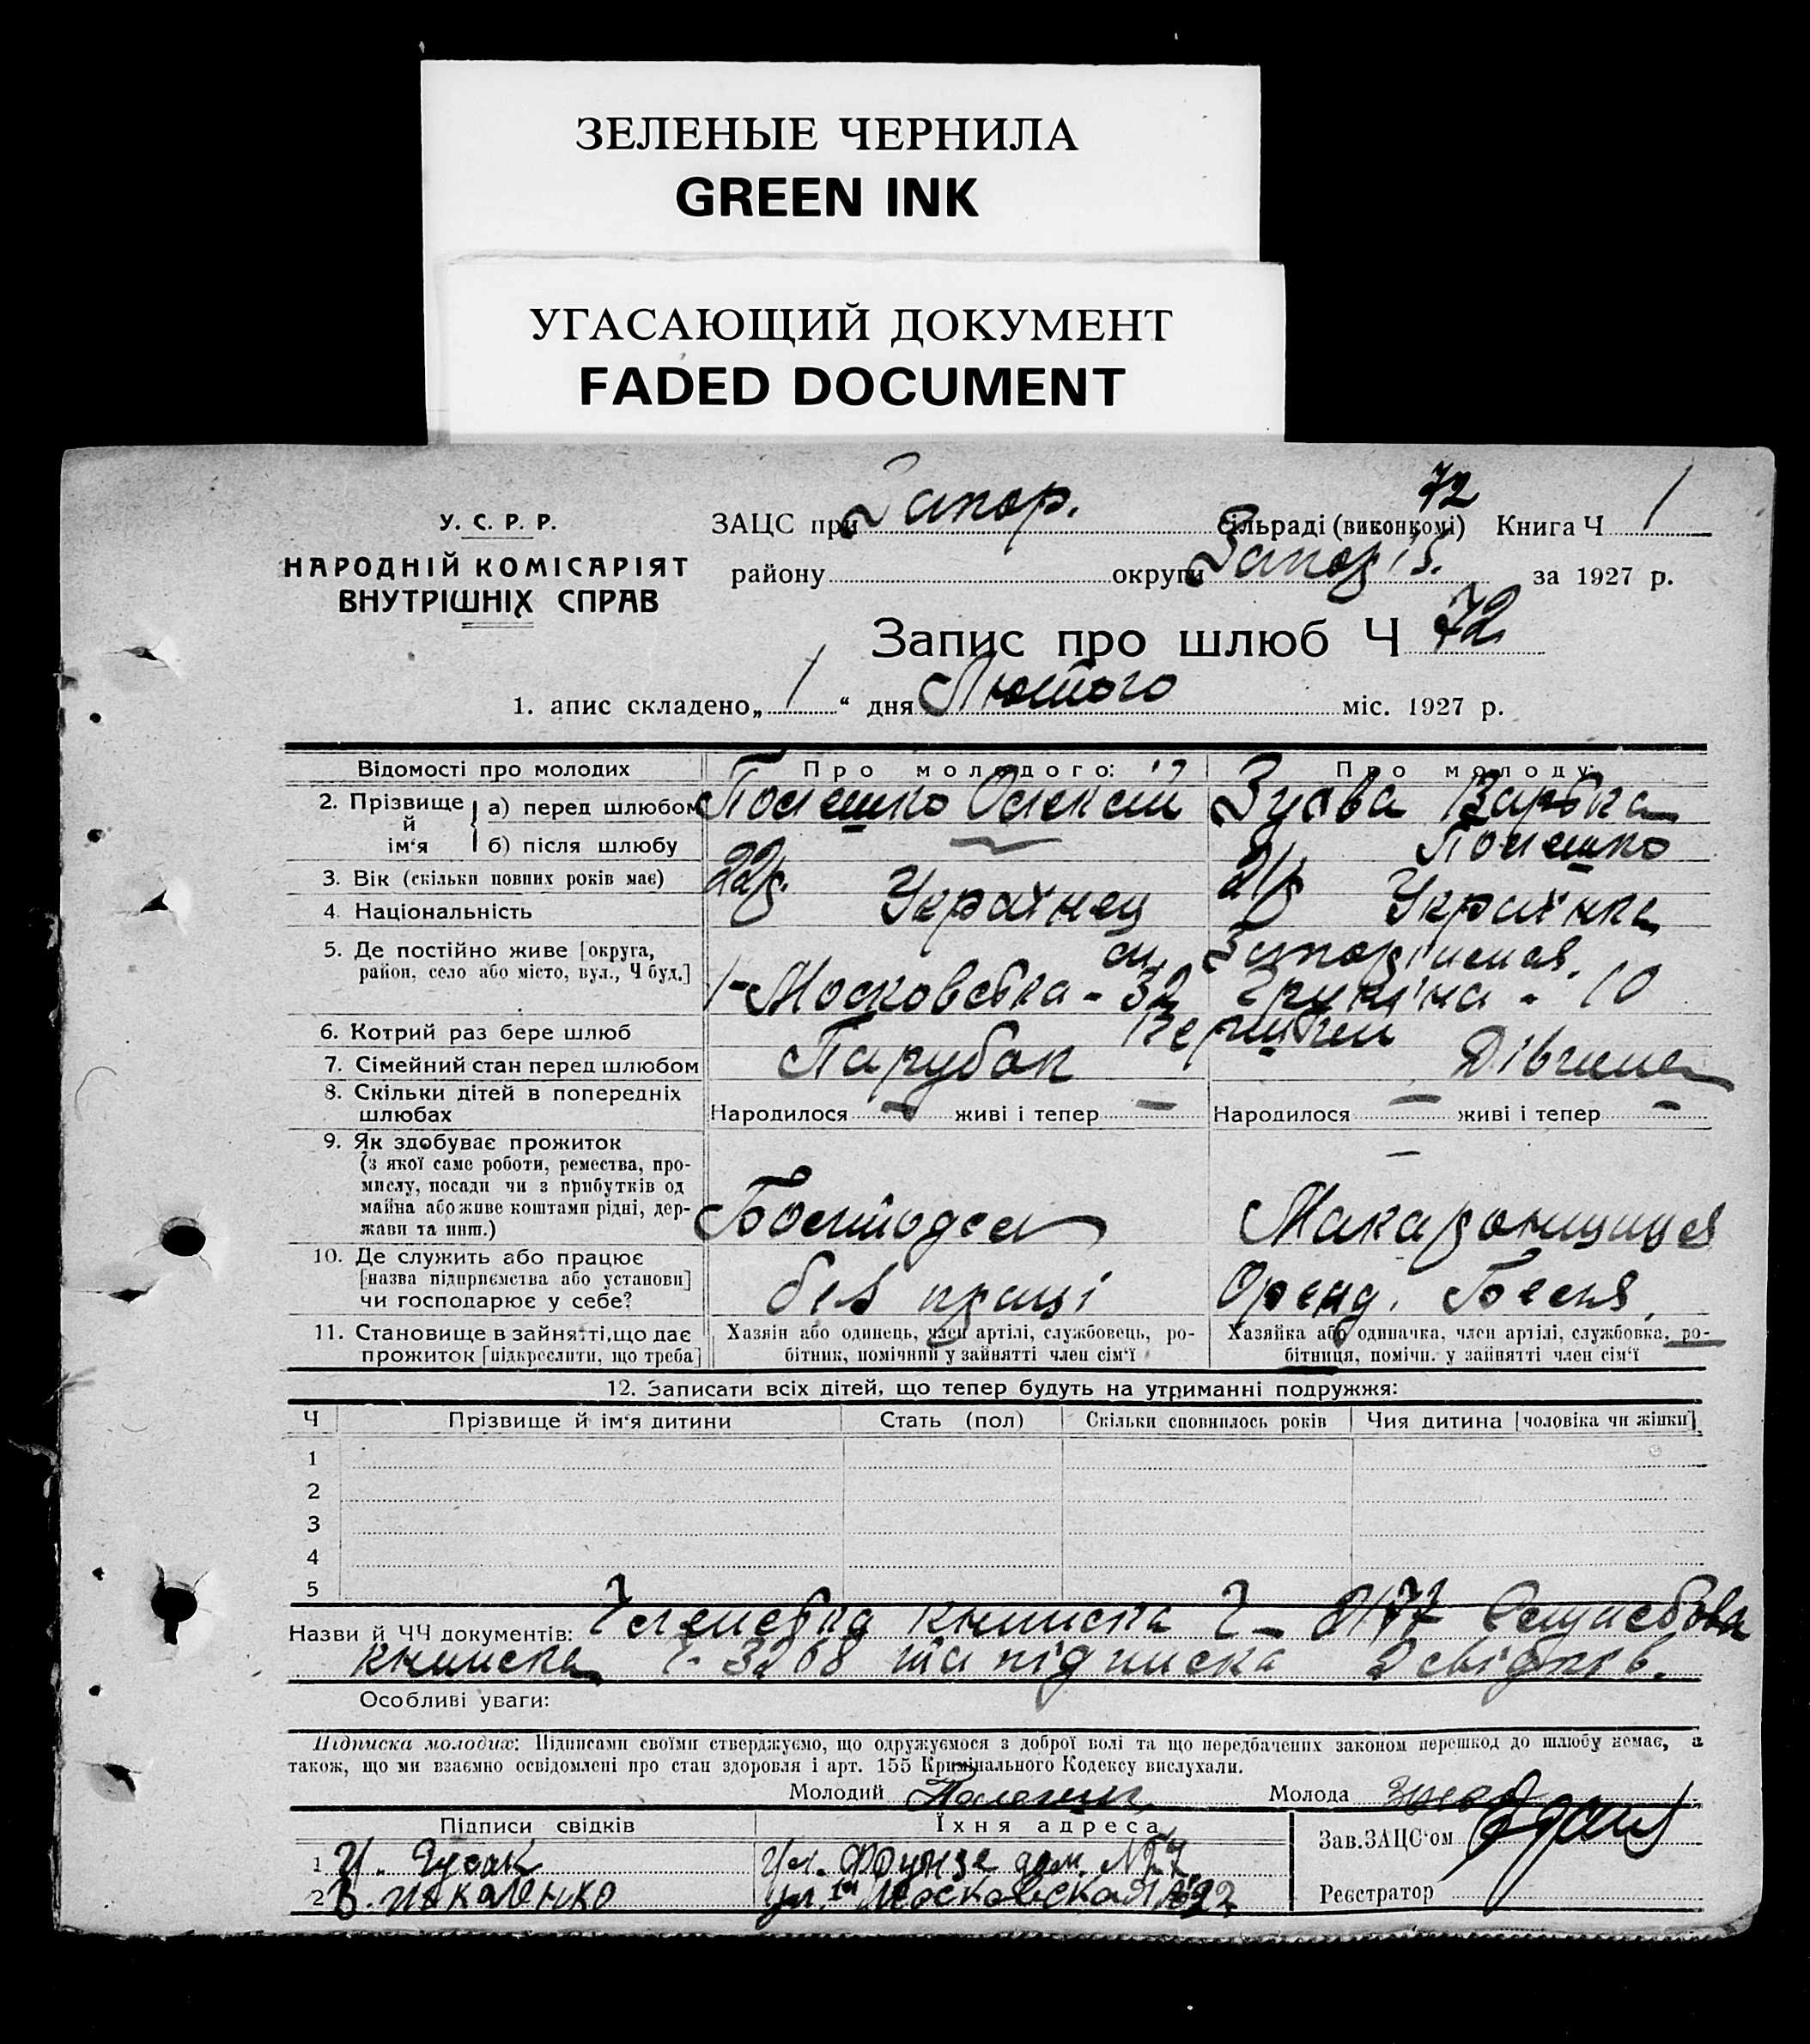 ЗЕЛЕНЫЕ ЧЕРНИЛА
GREEN INK
УГАСАЮЩИЙ ДОКУМЕНТ
FADED DOCUMENT
72
У. С. Р. Р.
НАРОДНІЙ КОМІСАРІЯТ
ВНУТРІШНІХ СПРАВ
ЗАЦС при Запор. сільраді (виконкомі) Книга Ч 1
району округи Запоріз. за 1927 р.
Запис про шлюб Ч 72
1. апис складено „ 1 “ дня Лютого міс. 1927 р.
Відомості про молодих
Про молодого:
Про молоду:
2. Прізвище й ім'я
а) перед шлюбом
Полешко Олексій
Варька
б) після шлюбу
Полешко
3. Вік (скільки повних років має)
22р.
21р
4. Національність
Українец
Українка
5. Де постійно живе [округа, район, село або місто, вул., Ч буд.]
м. Запоріжжя.
1-Московська - 32
- 10
6. Котрий раз бере шлюб
Першій
7. Сімейний стан перед шлюбом
Парубок
Дівчина
8. Скільки дітей в попередніх шлюбах
Народилося — живі і тепер —
Народилося — живі і тепер —
9. Як здобуває прожиток
(з якої саме роботи, ремества, промислу, посади чи з прибутків од майна або живе коштами рідні, держави та инш.)
—
Макаронщиця
10. Де служить або працює
[назва підприємства або установи]
чи господарює у себе?
без праці
Оренд.
11. Становище в зайнятті, що дає прожиток [підкреслити, що треба]
Хазяїн або одинець, член артілі, службовець, робітник, помічний у зайнятті член сім'ї
Хазяйка або одиначка, член артілі, службовка, робітниця, помічн. у зайнятті член сім'ї
12. Записати всіх дітей, що тепер будуть на утриманні подружжя:
Ч
Прізвище й ім'я дитини
Стать (пол)
Скільки сповнилось років
Чия дитина [чоловіка чи жінки]
1
2
3
4
5
Назви й ЧЧ документів: Членська книжка Ч - 8177
книжка Ч. 3268 та підписка 2 свідків.
Особливі уваги:
Підписка молодих: Підписами своїми стверджуємо, що одружуємося з доброї волі та що передбачених законом перешкод до шлюбу немає, а
також, що ми взаємно освідомлені про стан здоровля і арт. 155 Кримінального Кодексу вислухали.
Молодий
Молода
Підписи свідків
Їхня адреса
1 И. Гусак
ул. Фрунзе дом. №
2 В. Макаленко
ул. 1я Московская №
Зав. ЗАЦС'ом
Реєстратор